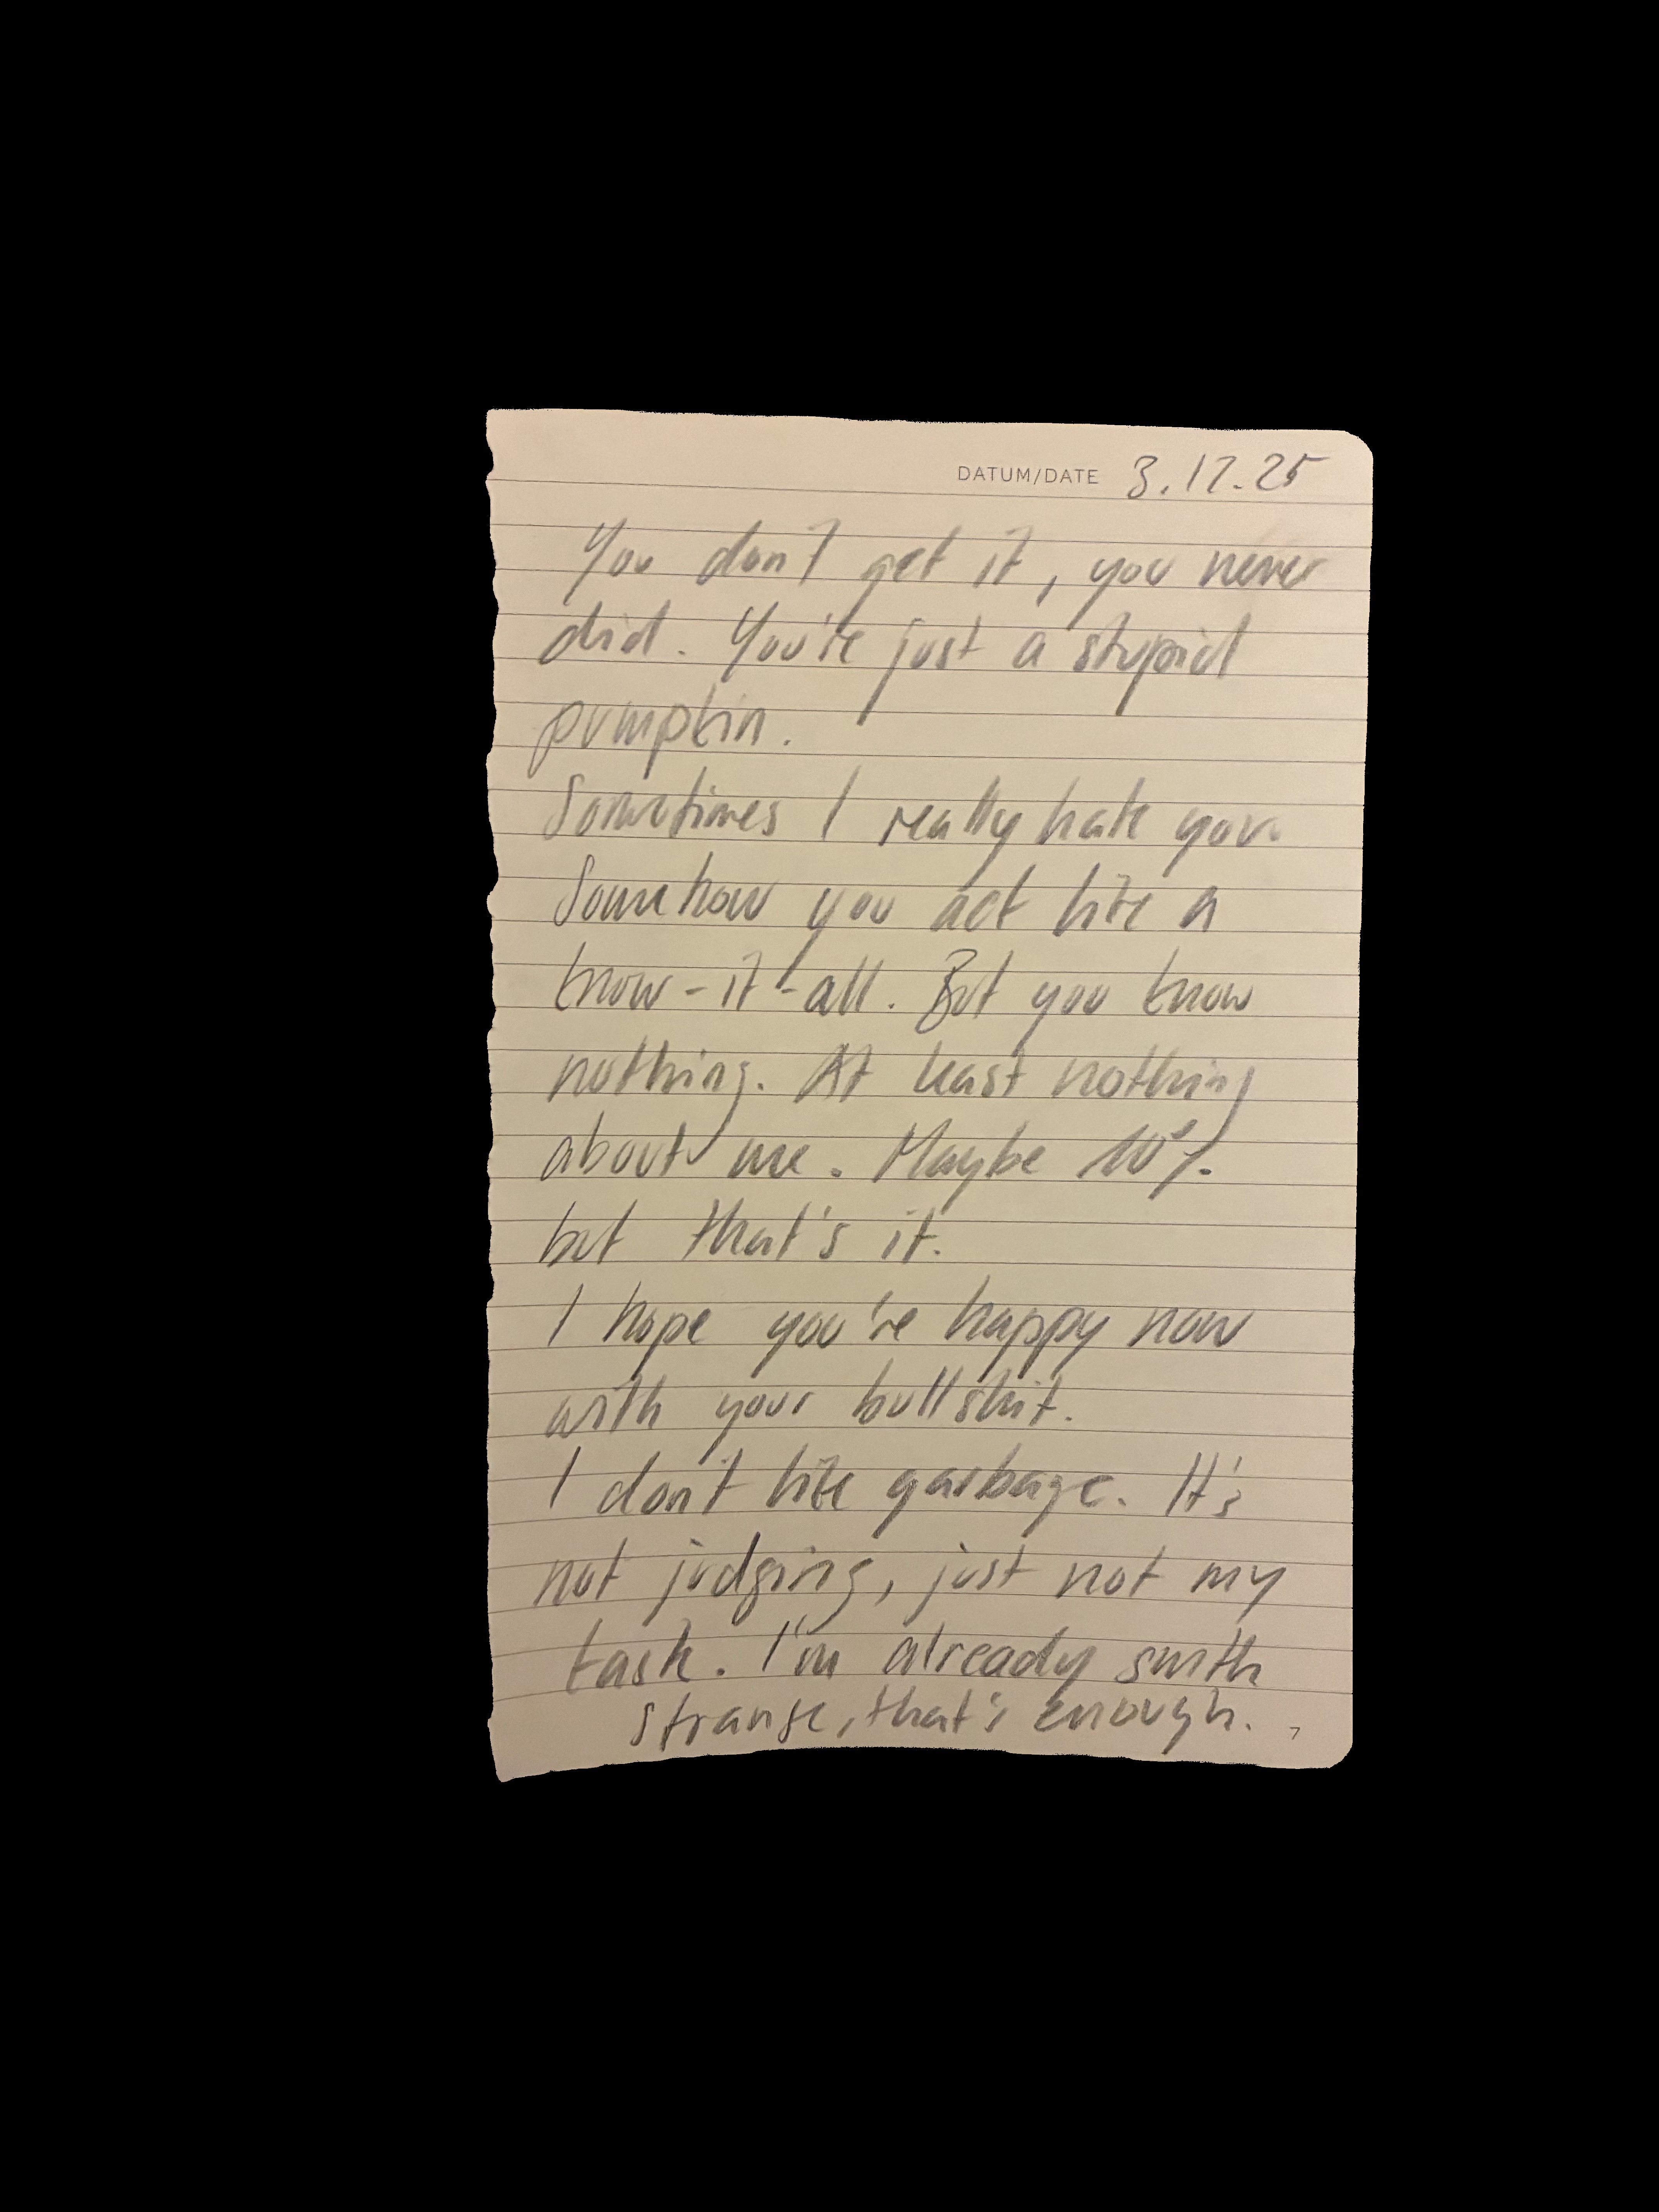 DATUM/DATE 3.12.25
You don't get it, you never
did. You're just a stupid
pumpkin.
Sometimes I really hate you.
Somehow you act like a
know-it-all. But you know
nothing. At least nothing
about me. Maybe 10%
but that's it.
I hope you're happy now
with your bullshit.
I don't like garbage. It's
not judging, just not my
task. I'm already
strange, that's enough.
7